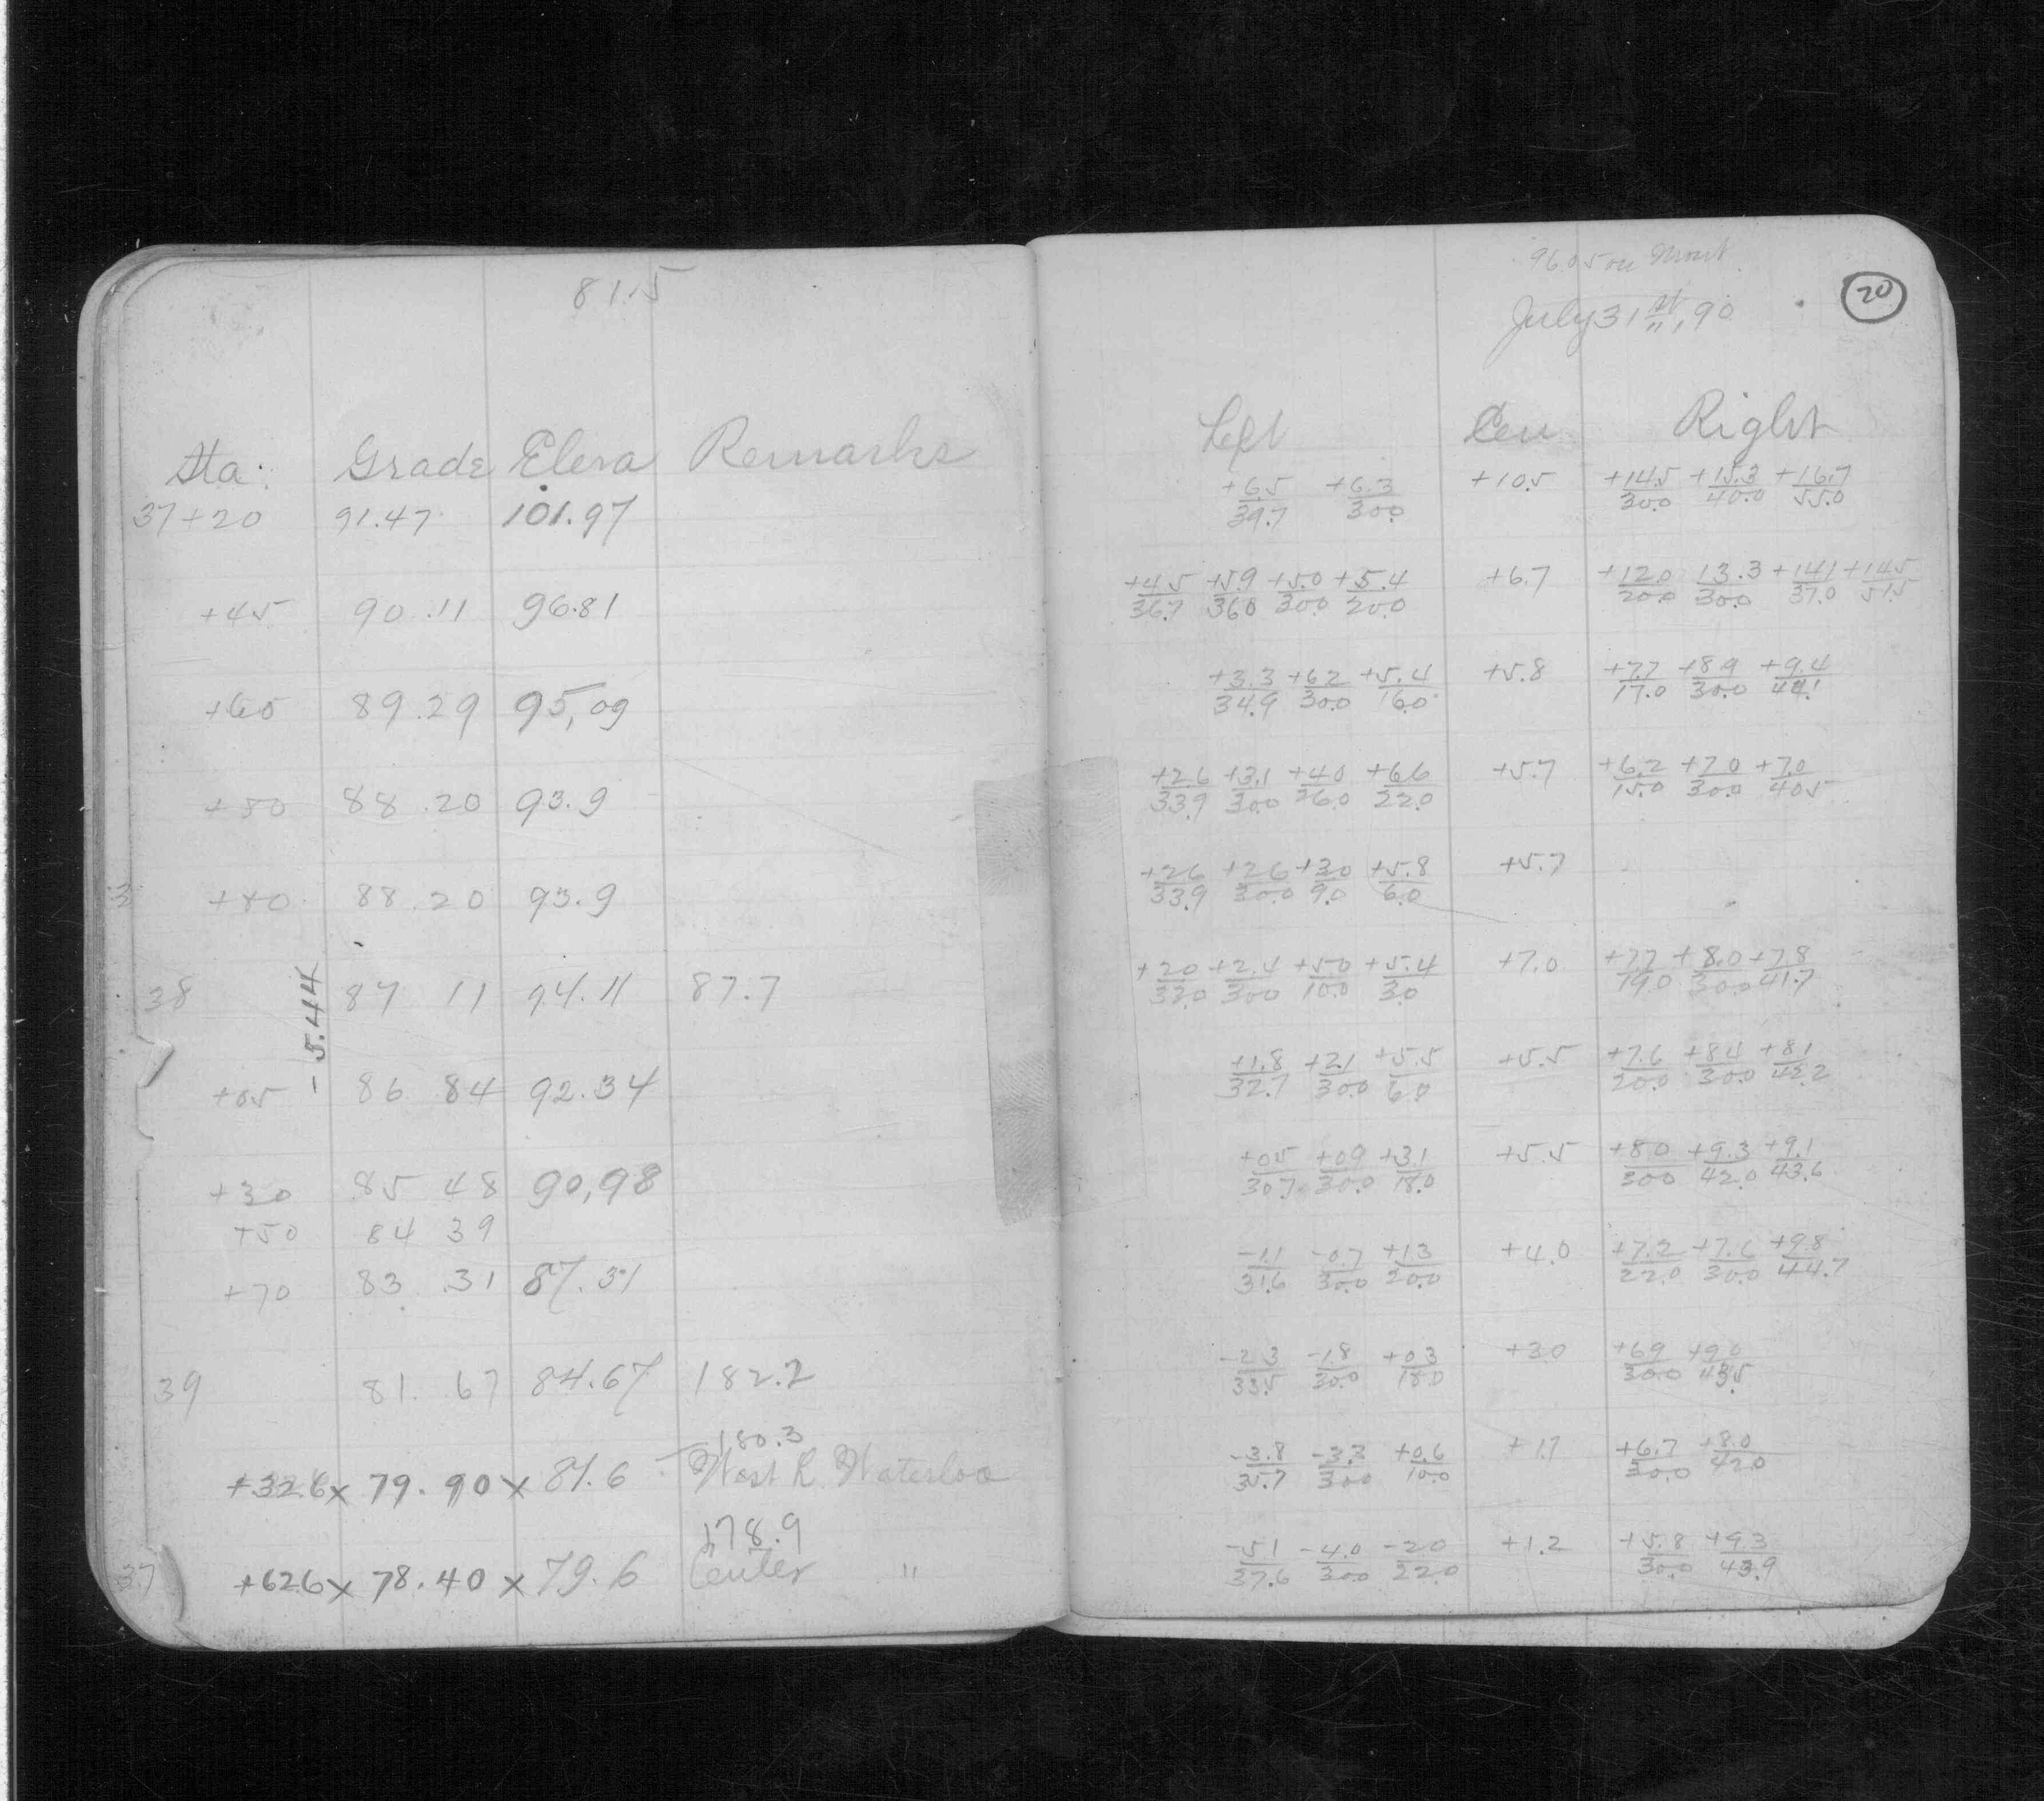 81.5
Sta. Grade Eleva Remarks
37+20 91.47 101.97
+45 90.11 96.81
+60 89.29 95,09
+80 88.20 93.9
+80 88.20 93.9
38 87 11 94.11 87.7
-5.44
+05 86 84 92.34
+30 85 48 90,98
+50 84 39
+70 83 31 87.31
39 81. 67 84.67 182.2
180.3
+32.6 x 79.90 x 81.6 West R. Waterloo
178.9
+62.6 x 78.40 x 79.6 Center "
37
96.05 on
20
July 31st, 90
Left Cen Right
+6.5 +6.3 +10.5 +14.5 +15.3 +16.7
39.7 30.0 30.0 40.0 55.0
+4.5 +5.9 +5.0 +5.4 +6.7 +12.0 13.3 +14.1 +14.5
36.7 36.0 30.0 20.0 20.0 30.0 37.0 51.5
+3.3 +6.2 +5.4 +5.8 +7.7 +8.9 +9.4
34.9 30.0 16.0 17.0 30.0 44.1
+2.6 +3.1 +4.0 +6.6 +5.7 +6.2 +7.0 +7.0
33.9 30.0 26.0 22.0 15.0 30.0 40.5
+2.6 +2.6 +3.0 +5.8 +5.7
33.9 30.0 9.0 6.0
+2.0 +2.4 +5.0 +5.4 +7.0 +7.7 +8.0 +7.8
33.0 30.0 10.0 3.0 19.0 30.0 41.7
+1.8 +2.1 +5.5 +5.5 +7.6 +8.4 +8.1
32.7 30.0 6.0 20.0 30.0 42.2
+0.5 +0.9 +3.1 +5.5 +8.0 +9.3 +9.1
30.7 30.0 18.0 30.0 42.0 43.6
-1.1 -0.7 +1.3 +4.0 +7.2 +7.6 +9.8
31.6 30.0 20.0 22.0 30.0 44.7
-2.3 -1.8 +0.3 +3.0 +6.9 +9.0
33.5 30.0 18.0 30.0 43.5
-3.8 -3.3 +0.6 +1.7 +6.7 +8.0
35.7 30.0 10.0 30.0 42.0
-5.1 -4.0 -2.0 +1.2 +5.8 +9.3
37.6 30.0 22.0 30.0 43.9